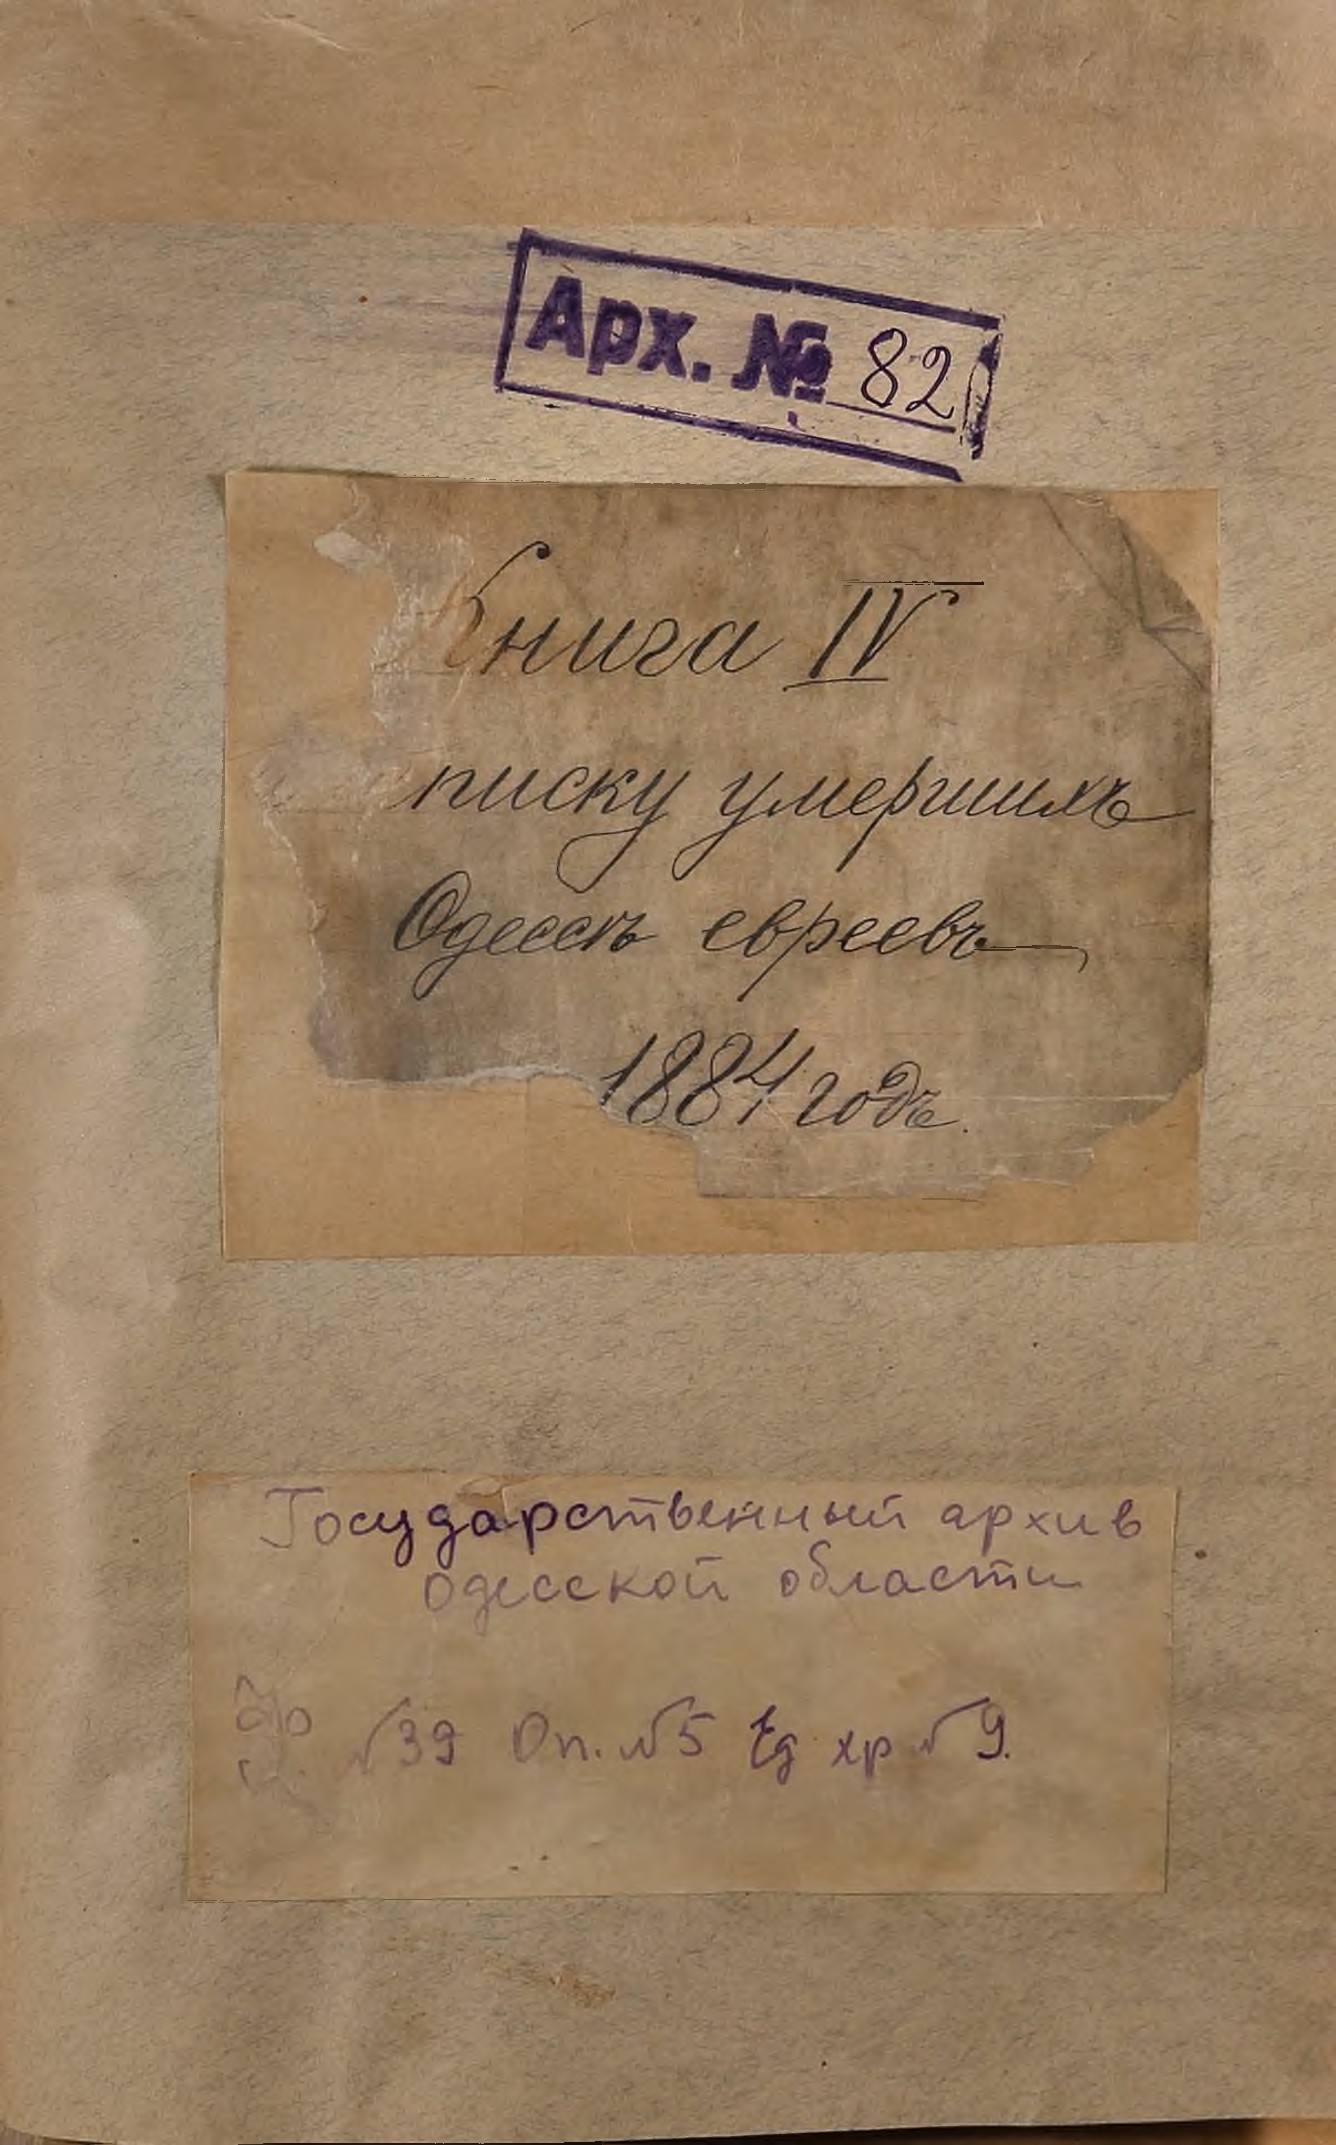 Арх. № 82
Книга IV
писку умершихъ
Одесск евреевъ
1884 годъ.
Государственный архив
Одесской области
Ф № 39 Оп. № 5 Ед хр № 9.